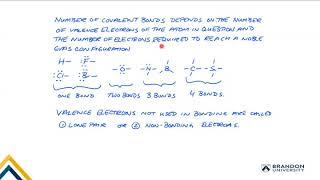 NUMBER OF COVALENT BONDS DEPENDS ON THE NUMBER
OF VALENCE ELECTRONS OF THE ATOM IN QUESTION AND
THE NUMBER OF ELECTRONS REQUIRED TO REACH A NOBLE
GAS CONFIGURATION
H– :F–
:Cl– :Br– –O– –N– –B– –C– –Si–
ONE BOND TWO BONDS 3 BONDS 4 BONDS.
VALENCE ELECTRONS NOT USED IN BONDING ARE CALLED
① LONE PAIR OR ② NON-BONDING ELECTRONS.
BRANDON
UNIVERSITY